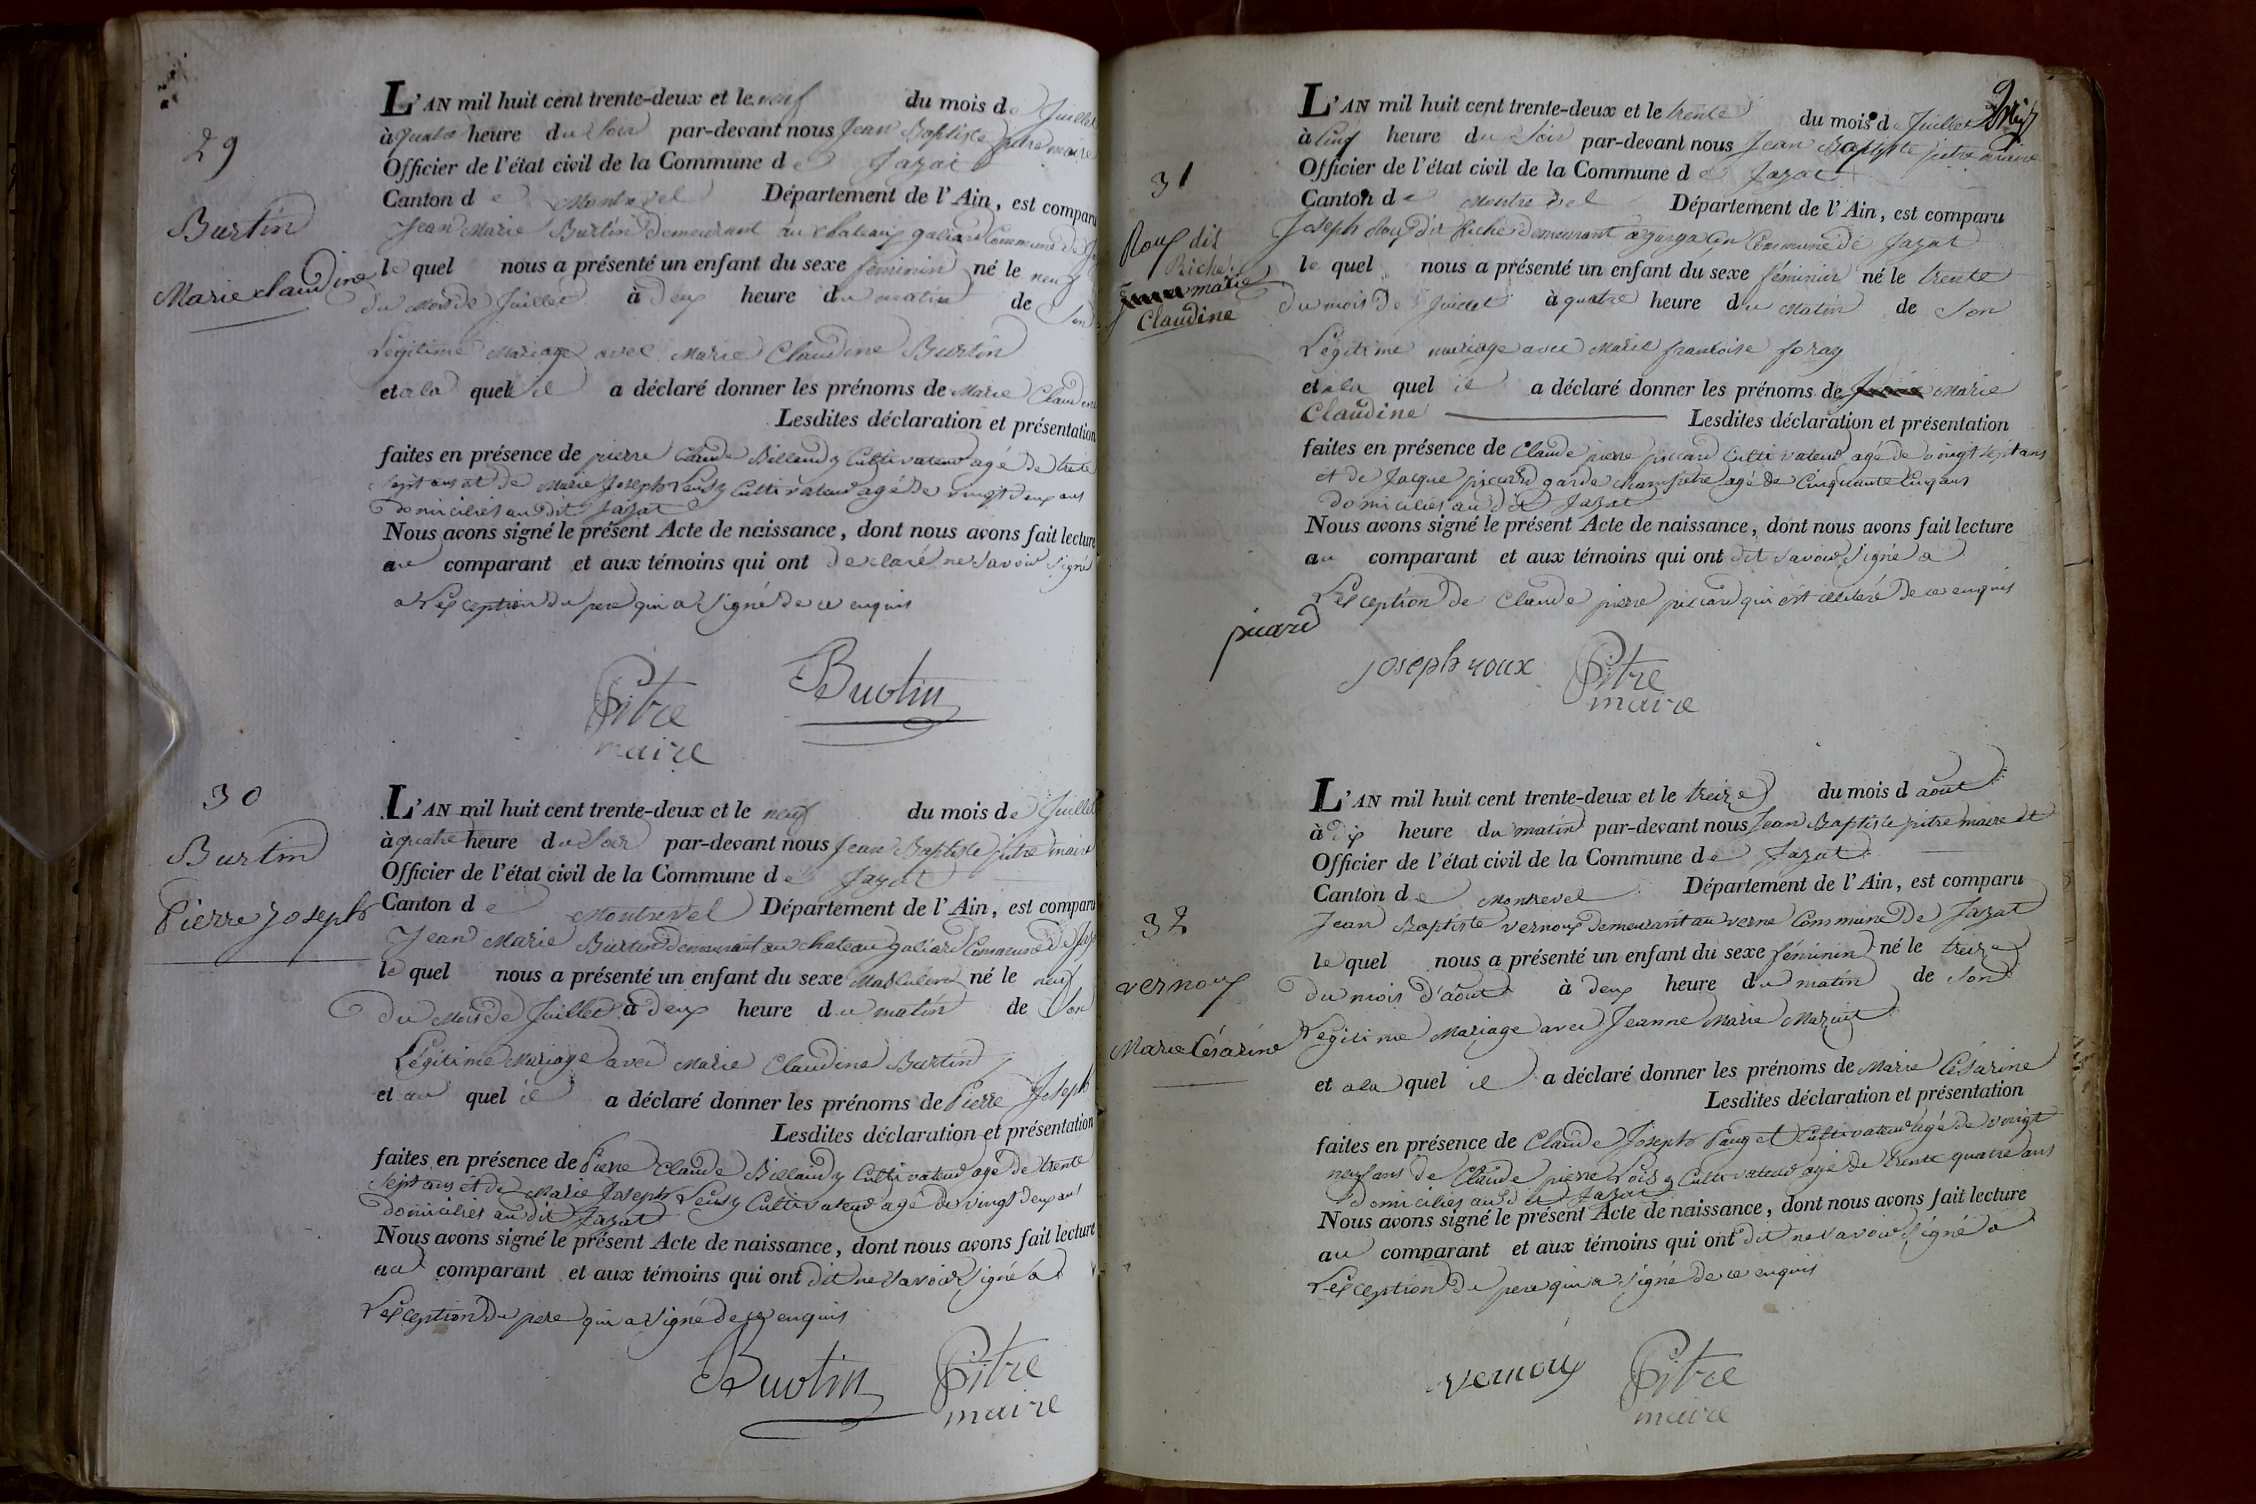 29
Burtin
Marie Claudine
L'AN mil huit cent trente-deux et le neuf du mois de Juillet
à quatre heure du Soir par-devant nous Jean Baptiste pitre maire
Officier de l'état civil de la Commune de Jayat
Canton de Montrevel Département de l'Ain, est comparu
Jean Marie Burtin demeurant au chateau galiard Commune de
le quel nous a présenté un enfant du sexe féminin né le neuf
du Mois de Juillet à deux heure du matin de Son
Légitime Mariage avec Marie Claudine Burtin
et a la quel il a déclaré donner les prénoms de Marie Claudine
Lesdites déclaration et présentation
faites en présence de pierre Claude Billaudy Cultivateur agé de trente
Sept ans et de Marie Joseph Cultivateur agé de vingt deux ans
domiciliés au dit Jayat
Nous avons signé le présent Acte de naissance, dont nous avons fait lecture
au comparant et aux témoins qui ont declaré ne Savoir Signé
a L'exception du pere qui a Signé de ce enquis
Pitre
maire
Burtin
30
Burtin
Pierre Joseph
L'AN mil huit cent trente-deux et le neuf du mois de Juillet
à quatre heure du Soir par-devant nous Jean Baptiste pitre maire
Officier de l'état civil de la Commune de Jayat
Canton de Montrevel Département de l'Ain, est comparu
Jean Marie Burtin demeurant au chateau galiard Commune de
le quel nous a présenté un enfant du sexe Masculin né le neuf
du Mois de Juillet à deux heure du matin de Son
Légitime Mariage avec Marie Claudine Burtin
et au quel il a déclaré donner les prénoms de Pierre Joseph
Lesdites déclaration et présentation
faites en présence de Pierre Claude Billaudy Cultivateur agé de trente
Sept ans et de Marie Joseph Cultivateur agé de vingt deux ans
domiciliés au dit Jayat
Nous avons signé le présent Acte de naissance, dont nous avons fait lecture
au comparant et aux témoins qui ont dit ne Savoir Signé a
L'exception du pere qui a Signé de ce enquis
Burtin
Pitre
maire
31
Roux dit
Riche
marie
Claudine
L'AN mil huit cent trente-deux et le trente du mois de Juillet
à Cinq heure du Soir par-devant nous Jean Baptiste pitre maire
Officier de l'état civil de la Commune de Jayat
Canton de Montrevel Département de l'Ain, est comparu
Joseph Roux dit Riche demeurant a Commune de Jayat
le quel nous a présenté un enfant du sexe féminin né le trente
du mois de Juillet à quatre heure du Matin de Son
Légitime mariage avec Marie francoise foray
et a la quel il a déclaré donner les prénoms de Marie
Claudine Lesdites déclaration et présentation
faites en présence de Claude pierre piccard Cultivateur agé de vingt Sept ans
et de Jacque piccard garde champetre agé de Cinquante Cinq ans
domiciliés au dit Jayat
Nous avons signé le présent Acte de naissance, dont nous avons fait lecture
au comparant et aux témoins qui ont dit Savoir Signé a
L'exception de Claude pierre piccard qui est illiteré de ce enquis
picard
joseph roux
Pitre
maire
32
vernoux
Marie Césarine
L'AN mil huit cent trente-deux et le treize du mois d'août
à dix heure du matin par-devant nous Jean Baptiste pitre maire et
Officier de l'état civil de la Commune de Jayat
Canton de Montrevel Département de l'Ain, est comparu
Jean Baptiste vernoux demeurant au verne Commune de Jayat
le quel nous a présenté un enfant du sexe féminin né le treize
du mois d'août à deux heure du matin de Son
Légitime Mariage avec Jeanne Marie
et a la quel il a déclaré donner les prénoms de Marie Césarine
Lesdites déclaration et présentation
faites en présence de Claude Joseph Pauget Cultivateur agé de vingt
neuf ans de Claude pierre Cultivateur agé de trente quatre ans
domiciliés au dit Jayat
Nous avons signé le présent Acte de naissance, dont nous avons fait lecture
au comparant et aux témoins qui ont dit ne savoir Signé a
L'exception du pere qui a Signé de ce enquis
vernoux
Pitre
maire